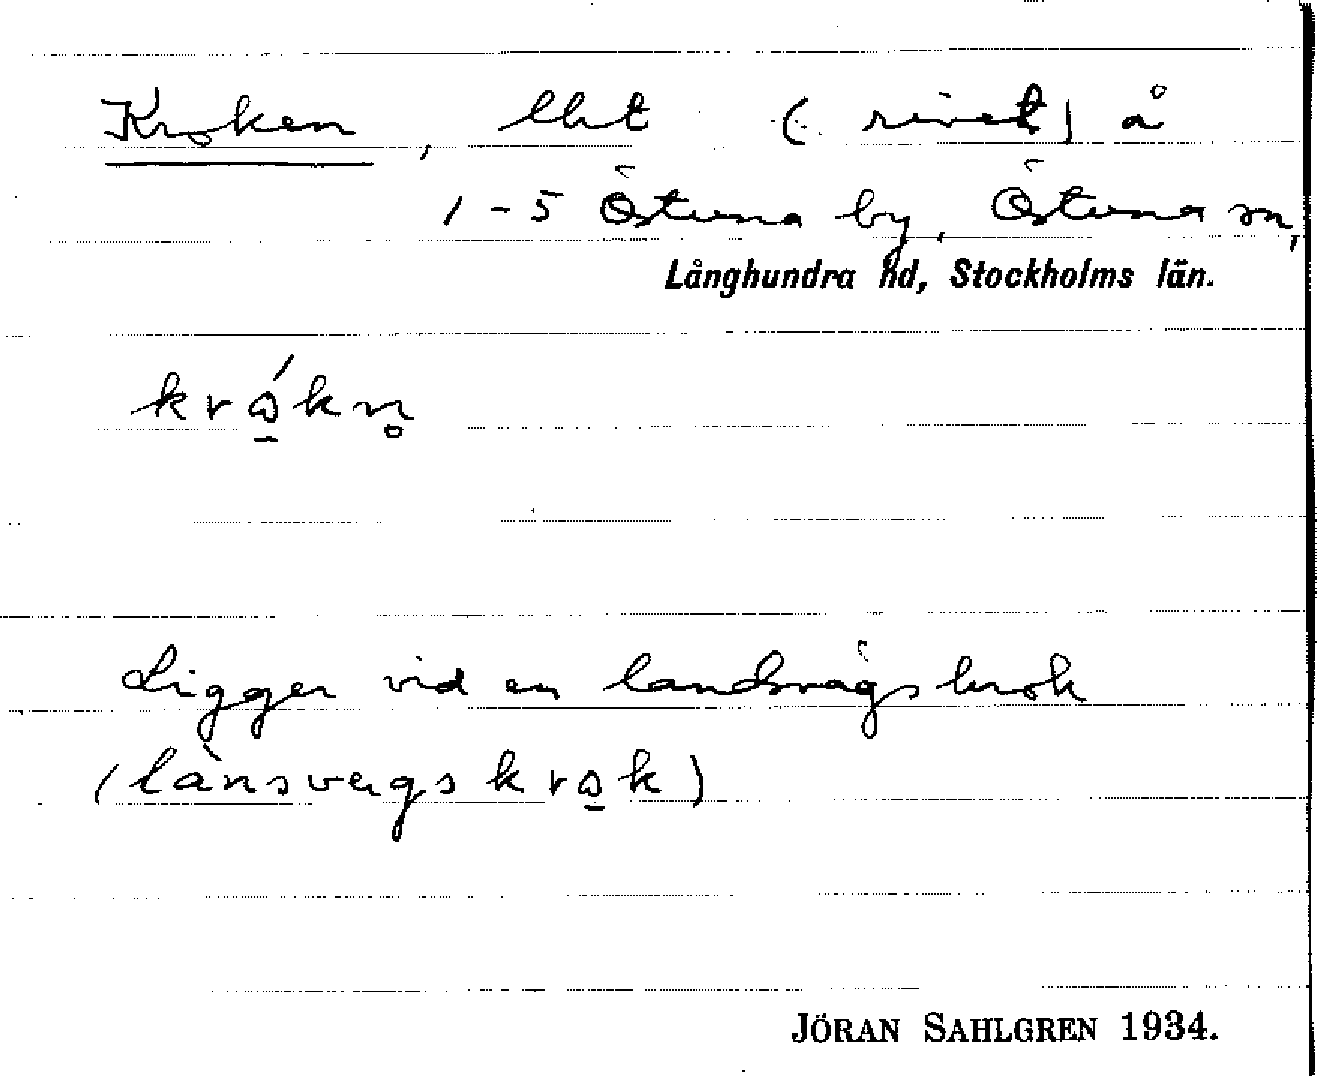 Kroken, lht (rivet) å
1-5 Östuna by, Östuna sn,
Långhundra hd, Stockholms län.
krɷ̱́kn̥
Ligger vid en landsvägskrok
(lànsvægskrɷ̱k)
JÖRAN SAHLGREN 1934.